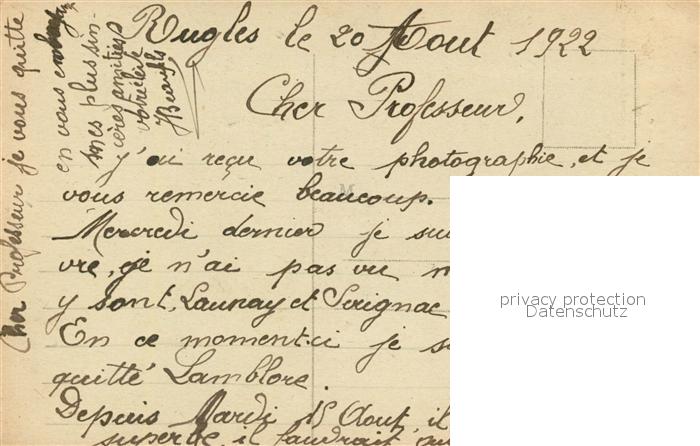 Rugles le 20 Aout 1922
Cher Professeur,
j'ai reçu votre photographie, et je
vous remercie beaucoup.
Mercredi dernier je sui
vré, je n'ai pas vu
y sont, Launay et Serignac
En ce moment-ci je s
quitté Lamblore.
Depuis Mardi 15 Aout, il
superbe, il faudrait
Cher Professeur je vous quitte
en vous
mes plus sin-
ères amitiés
privacy protection
Datenschutz